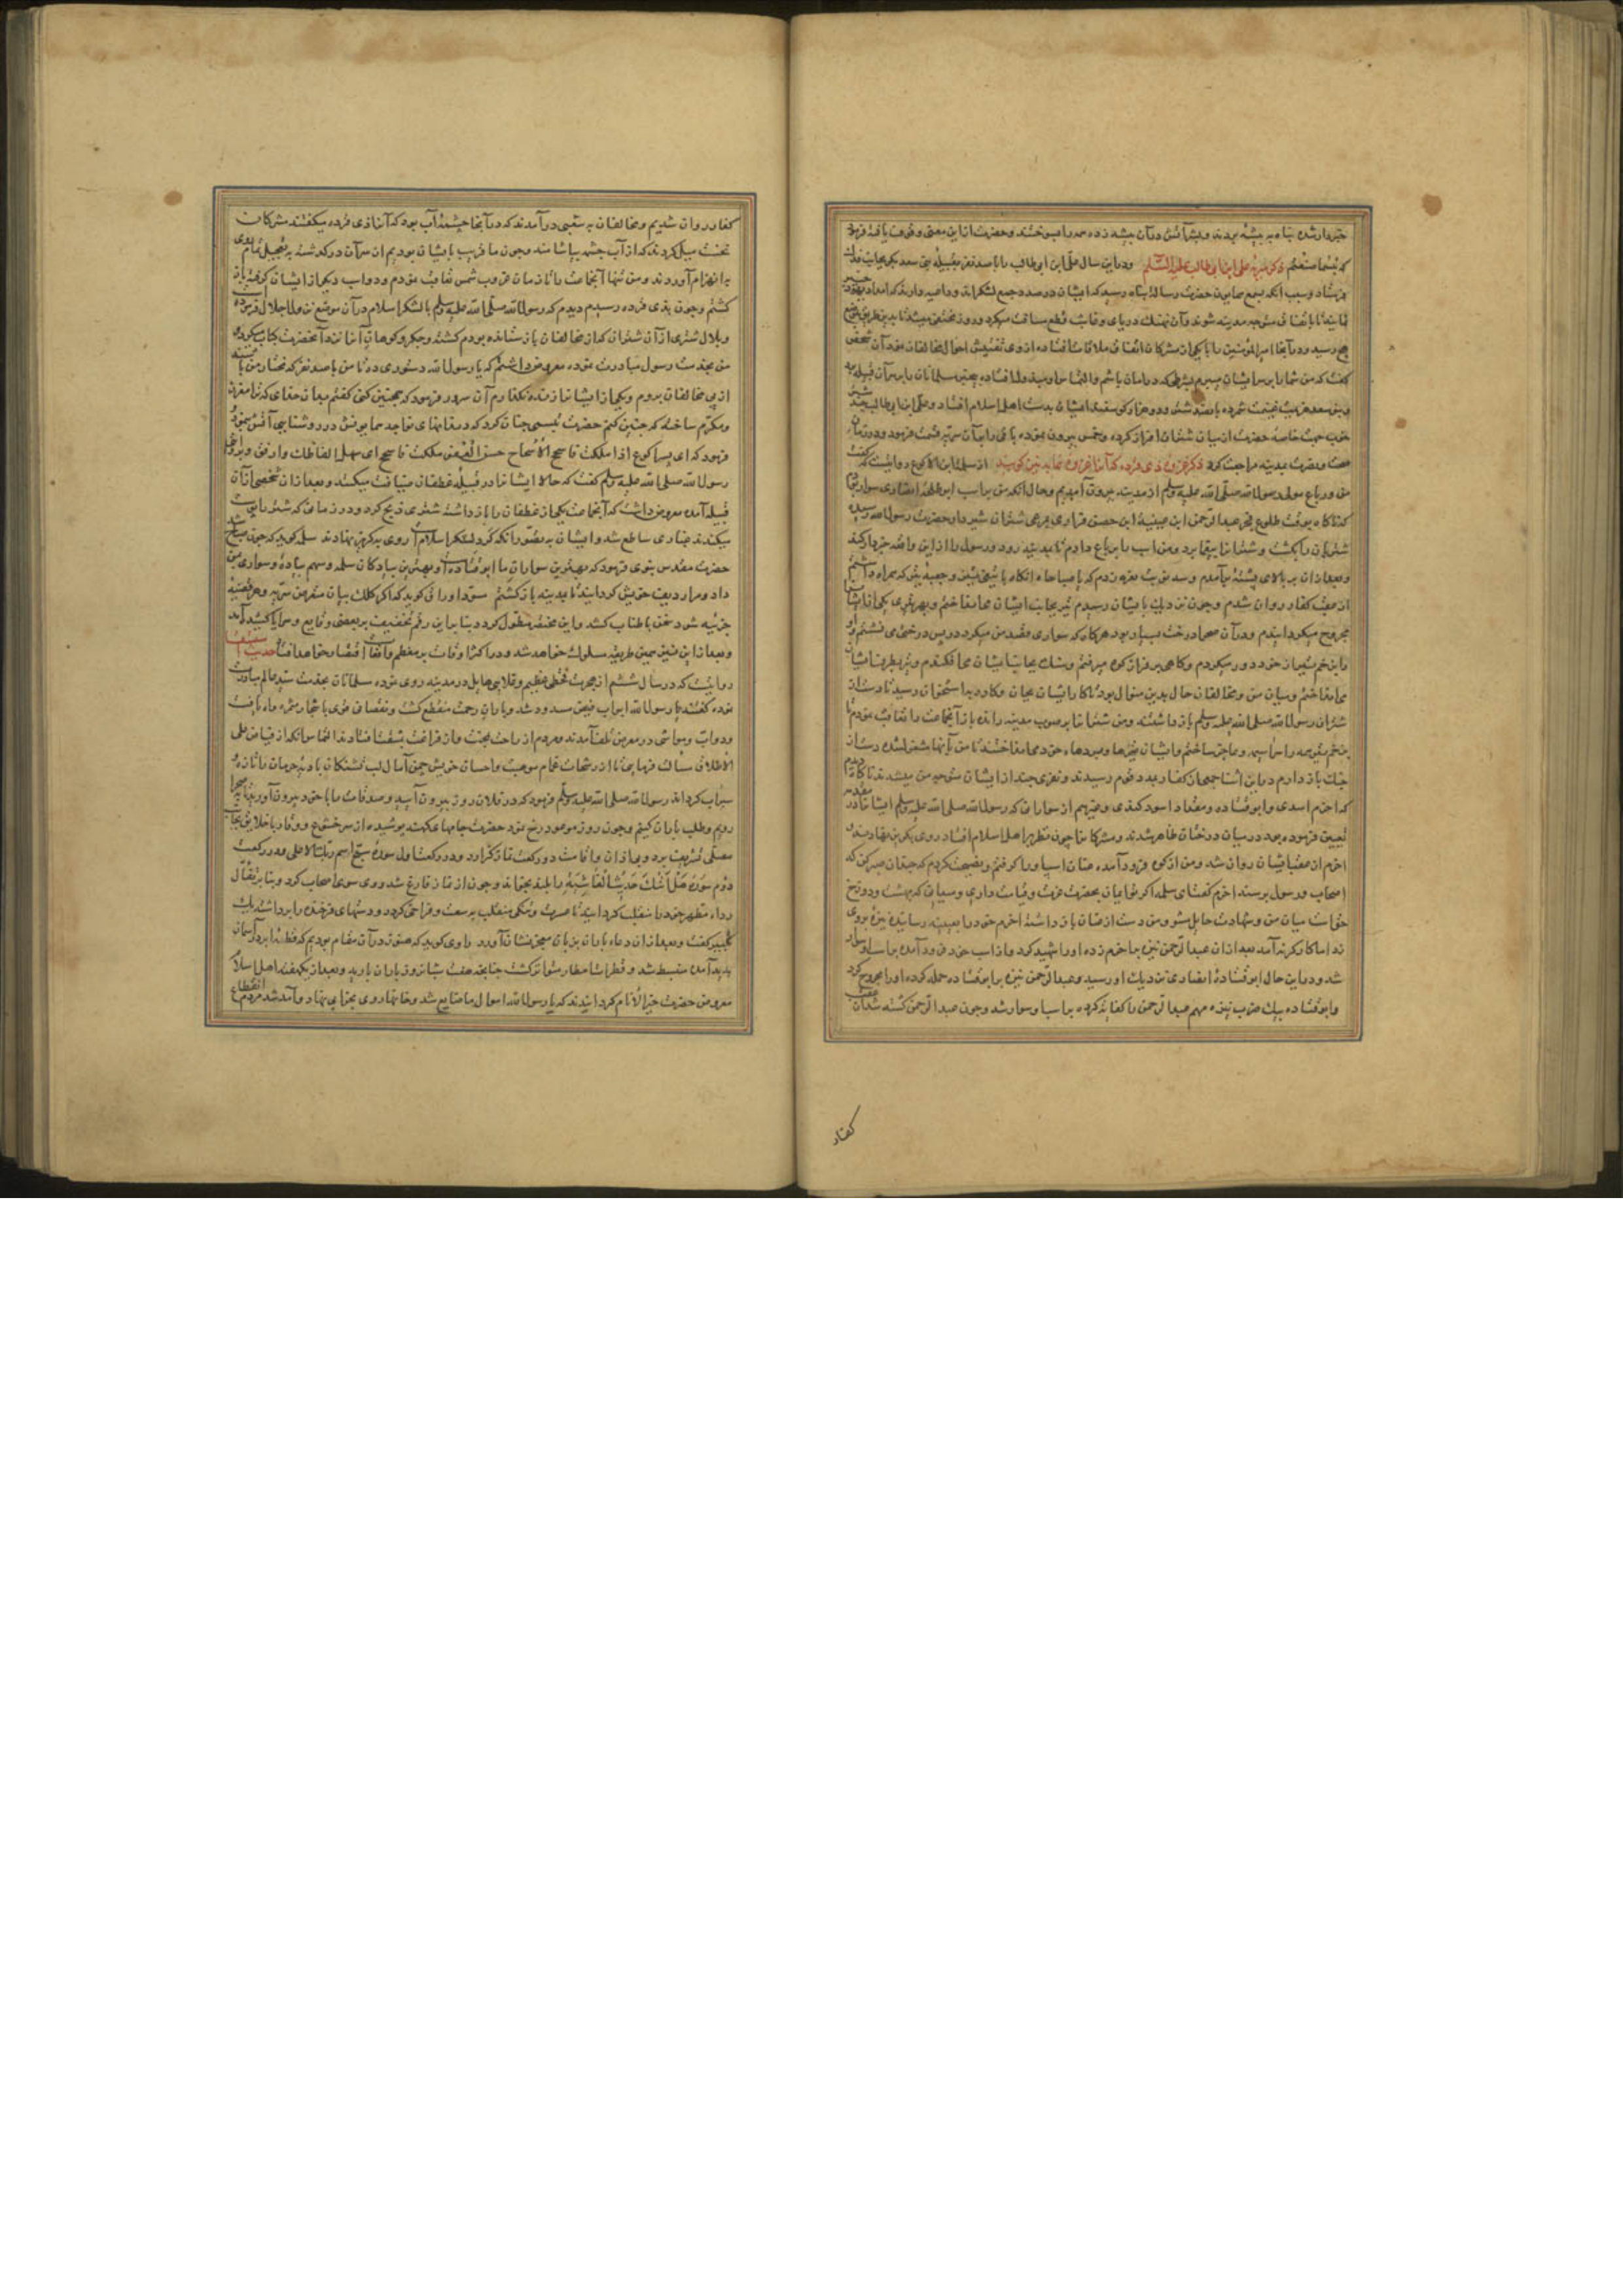 خبردار شده پناه به بیشه بردند و لشکر آتش در آن بیشه زده همه را بسوختند و حضرت از این معنی وقوف یافته فرمود
که بئسما صنعتم ذکر سریهٔ علی ابن ابی طالب علیه السلام و در این سال علی ابن ابی طالب را با صد نفر بقبیلهٔ بنی سعد بکر بجانب فدک
فرستاد و سبب آنکه بسمع همایون حضرت رسالت پناه رسید که ایشان در صدد جمع لشکراند و داعیه دارند که امداد یهود خیبر
نمایند تا باتفاق متوجه مدینه شوند و آن نهنک دریای وقایت قطع مسافت میکرد و روز مختفی میشد تا بدین طریق
رسید و در آنجا امیر المؤمنین را با یکی از مشرکان اتفاق ملاقات افتاده از وی تفتیش احوال مخالفان نمود آن شخص
کفت که من شما را بر سر ایشان میبرم بشرطی که در امان باشم و التماس او مبذول افتاده مسلمانان را بر سر آن قبیله برد
و بنی سعد هزیمت غنیمت شمرده پانصد شتر و دو هزار کوسفند ایشان بدست اهل اسلام افتاد و علی ابن ابی طالب چند شتر
خوب جهت خاصه حضرت از میان شتران افراز کرده و خمس بیرون نموده باقی را بر آن سریه قسمت فرمود و در زمان
صحت و نصرت بمدینه مراجعت نمود ذکر غزوهٔ ذی قرده که آنرا غزوهٔ غابه نیز کویند از سلمة ابن الاکوع روایتست که کفت
من و رباح مولی رسول الله صلی الله علیه وسلم از مدینه بیرون آمدیم و حال آنکه من بر اسب ابو طلحهٔ انصاری سوار بودم
که ناکاه بوقت طلوع فجر عبد الرحمن ابن عیینة ابن حصن فزاری بر مرعی شتران شیردار حضرت رسول الله رسیده
شتربان را بکشت و شترانرا بیغما برد و من اسب را برباح دادم تا بمدینه رود و رسول را از این واقعه خبردار کند
و بعد از آن بر بالای پشتهٔ برآمدم و سه نوبت نعره زدم که یا صباحاه انکاه با تیغی و جعبهٔ تیری که همراه داشتم
از عقب کفار روان شدم و چون نزدیک بایشان رسیدم تیر بجانب ایشان می‌انداختم و بهر تیری یکی از ایشان
مجروح میکردانیدم و در آن صحرا درخت بسیار بود هرکاه که سواری قصد من میکرد در پس درختی می نشستم و او
را بزخم تیر از خود دور میکردم و کاهی بر فراز کوه میرفتم و سنک بجانب ایشان می افکندم و تیر بطرف ایشان
می انداختم و میان من و مخالفان حال بدین منوال بود تا کار ایشان بجان و کارد باستخوان رسید تا دست از
شتران رسول الله صلی الله علیه وسلم باز داشتند و من شترانرا بر صوب مدینه رانده باز آنجماعت را تعاقب نمودم تا
بزخم تیر همه را سراسیمه و عاجز ساختم و ایشان نیزها و بردهاء خود می انداختند تا من بآنها مشغول شده دست از
جنک باز دارم در این اثنا جمعی از کفار بمدد قوم رسیدند و نفری چند از ایشان متوجه من میشدند تا کاه دیدم
که اخرم اسدی و ابو قتاده و مقداد اسود کندی و غیرهم از سوارانی که رسول الله صلی الله علیه وسلم ایشانرا در مقدمه
تعیین فرموده بود در میان درختان ظاهر شدند و مشرکانرا چون نظر بر اهل اسلام افتاد روی بکریز نهادند و
اخرم از عقب ایشان روان شد و من از کوه فرود آمده عنان اسب او را کرفتم و نصیحت کردم که چندان صبر کن که
اصحاب و رسول برسند اخرم کفت ای سلمه اکر تو ایمان بحضرت عزت و قیامت داری و میدانی که بهشت و دوزخ
حق است میان من و شهادت حایل مشو من دست از عنان باز داشته اخرم خود را بعبد الرحمن رسانیده نیزهٔ بروی
زد اما کارکر نه آمد بعد از آن عبد الرحمن نیزه بر اخرم زده او را شهید کرد و از اسب خود فرود آمده بر اسب او سوار
شد و در این حال ابو قتادهٔ انصاری نزدیک او رسید و عبد الرحمن نیزه بر ابو قتاده حمله کرده او را مجروح کرد
و ابو قتاده بیک ضرب نیزه مهم عبد الرحمن را کفایت کرده بر اسب او سوار شد و چون عبد الرحمن کشته شد از عقب
کفار
کفار روان شدیم و مخالفان به شعبی درآمدند که در آنجا چشمهٔ آب بود که آنرا ذی قرده میکفتند مشرکان
نخست میل کردند که از آب چشمه بیاشامند و چون ما قریب بایشان بودیم از سر آن درکذشته به تعجیل تمام روی
به انهزام آوردند و من تنها آنجماعت را تا زمان غروب شمس تعاقب نمودم و دو اسب دیکر از ایشان کرفته باز
کشتم و چون بذی قرده رسیدم دیدم که رسول الله صلی الله علیه وسلم با لشکر اسلام در آن موضع نزول اجلال فرموده
و بلال شتری از آن شتران که از مخالفان باز ستانده بودم کشته و جکر و کوهان آنرا نزد آنحضرت کباب میکرد
من بخدمت رسول مبادرت نموده معروض داشتم که یا رسول الله دستوری ده تا من با صد نفر که مختار من باشند
از پی مخالفان بروم و یکی از ایشانرا زنده نکذارم آن سرور فرمود که همچنین کنی کفتم بدان خدای که ترا معزز
و مکرم ساخته که چنین کنم حضرت تبسمی چنان کرد که دندانهای نواجد همایونش در روشنایی آتش بنمود
فرمود که ای پسر اکوع اذا ملکت فاسجح الاسجاح حسن العفو ملکت فاسجح ای سهل الفاظک وارفق
رسول الله صلی الله علیه وسلم کفت که حالا ایشانرا در قبیلهٔ غطفان ضیافت میکنند و بعد از آن شخصی از آن
قبیله آمده معروض داشت که آنجماعت یکی از غطفان را باز داشته شتری ذبح کرد و در زمانی که شتر را پوست
میکندند غباری ساطع شد و ایشان به تصور آنکه کرد لشکر اسلام است روی به کریز نهادند سلمه کوید که چون صبح شد
حضرت مقدس نبوی فرمود که بهترین سواران ما ابو قتاده است و بهترین پیادکان سلمه و سهم پیاده و سواری بمن
داد و مرا ردیف خویش کردانید تا بمدینه باز کشتم مسود اوراق کوید که اکر کلک بیان متعرض هر سریه و هر قضیه
جزئیه شود سخن باطناب کشد و این مختصر مطول کردد بنا بر این رقم تخفیف بر بعضی وقایع و سرایا کشیده آمد
و بعد از این نیز بهمین طریقه سلوک خواهد شد و در اکثر اوقات بر معظم واقعات اقتصار خواهد افتاد حدیث استسقا
روایتست که در سال ششم از هجرت قحطی عظیم و غلایی هایل در مدینه روی نموده مسلمانان بخدمت سید عالم مبادرت
نموده کفتند یا رسول الله ابواب فیض مسدود شد و باران رحمت منقطع کشت و نقصان قوی باشجار مثمره راه یافت
و دواب و مواشی در معرض تلف آمدند و مردم از راحت بمحنت و از فراغت بمشقت افتادند التماس آنکه از فیاض علی
الاطلاق مسألت فرمایی تا از رشحات غمام موهبت و احسان خویش چمن آمال لب تشنکان بادیهٔ حرمان را تازه و
سیراب کرداند رسول الله صلی الله علیه وسلم فرمود که در فلان روز بیرون آیید و صدقات را با خود بیرون آورید تا بصحرا
رویم و طلب باران کنیم و چون روز موعود رخ نمود حضرت جامهای کهنه پوشیده از سر خشوع و وقار با خلایق بجانب
مصلی تشریف برد و بی اذان و اقامت دو رکعت نماز بکزارد و در رکعت اول سورهٔ سبح اسم ربک الاعلی و در رکعت
دوم سورهٔ هل اتیک حدیث الغاشیة را بلند بخواند و چون از نماز فارغ شد روی سوی اصحاب کرد و بنا بر تفأل
رداء مطهر خود را منقلب کردانید تا عسرت و تنکی منقلب به سعت و فراخی کردد و دستهای فرخنده را برداشته یک
تکبیر کفت و بعد از آن دعاء باران بزبان معجز نشان آورد راوی کوید که هنوز در آن مقام بودیم که قطعه ابر در آسمان
پدید آمده منبسط شد و قطرات امطار متواتر کشت چنانچه هفت شبانروز باران بارید و بعد از یک هفته اهل اسلام
معروض حضرت خیر الانام کردانیدند که یا رسول الله اموال ما ضایع شد و خانها روی بخرابی نهاد و آمد شد مردم انقطاع